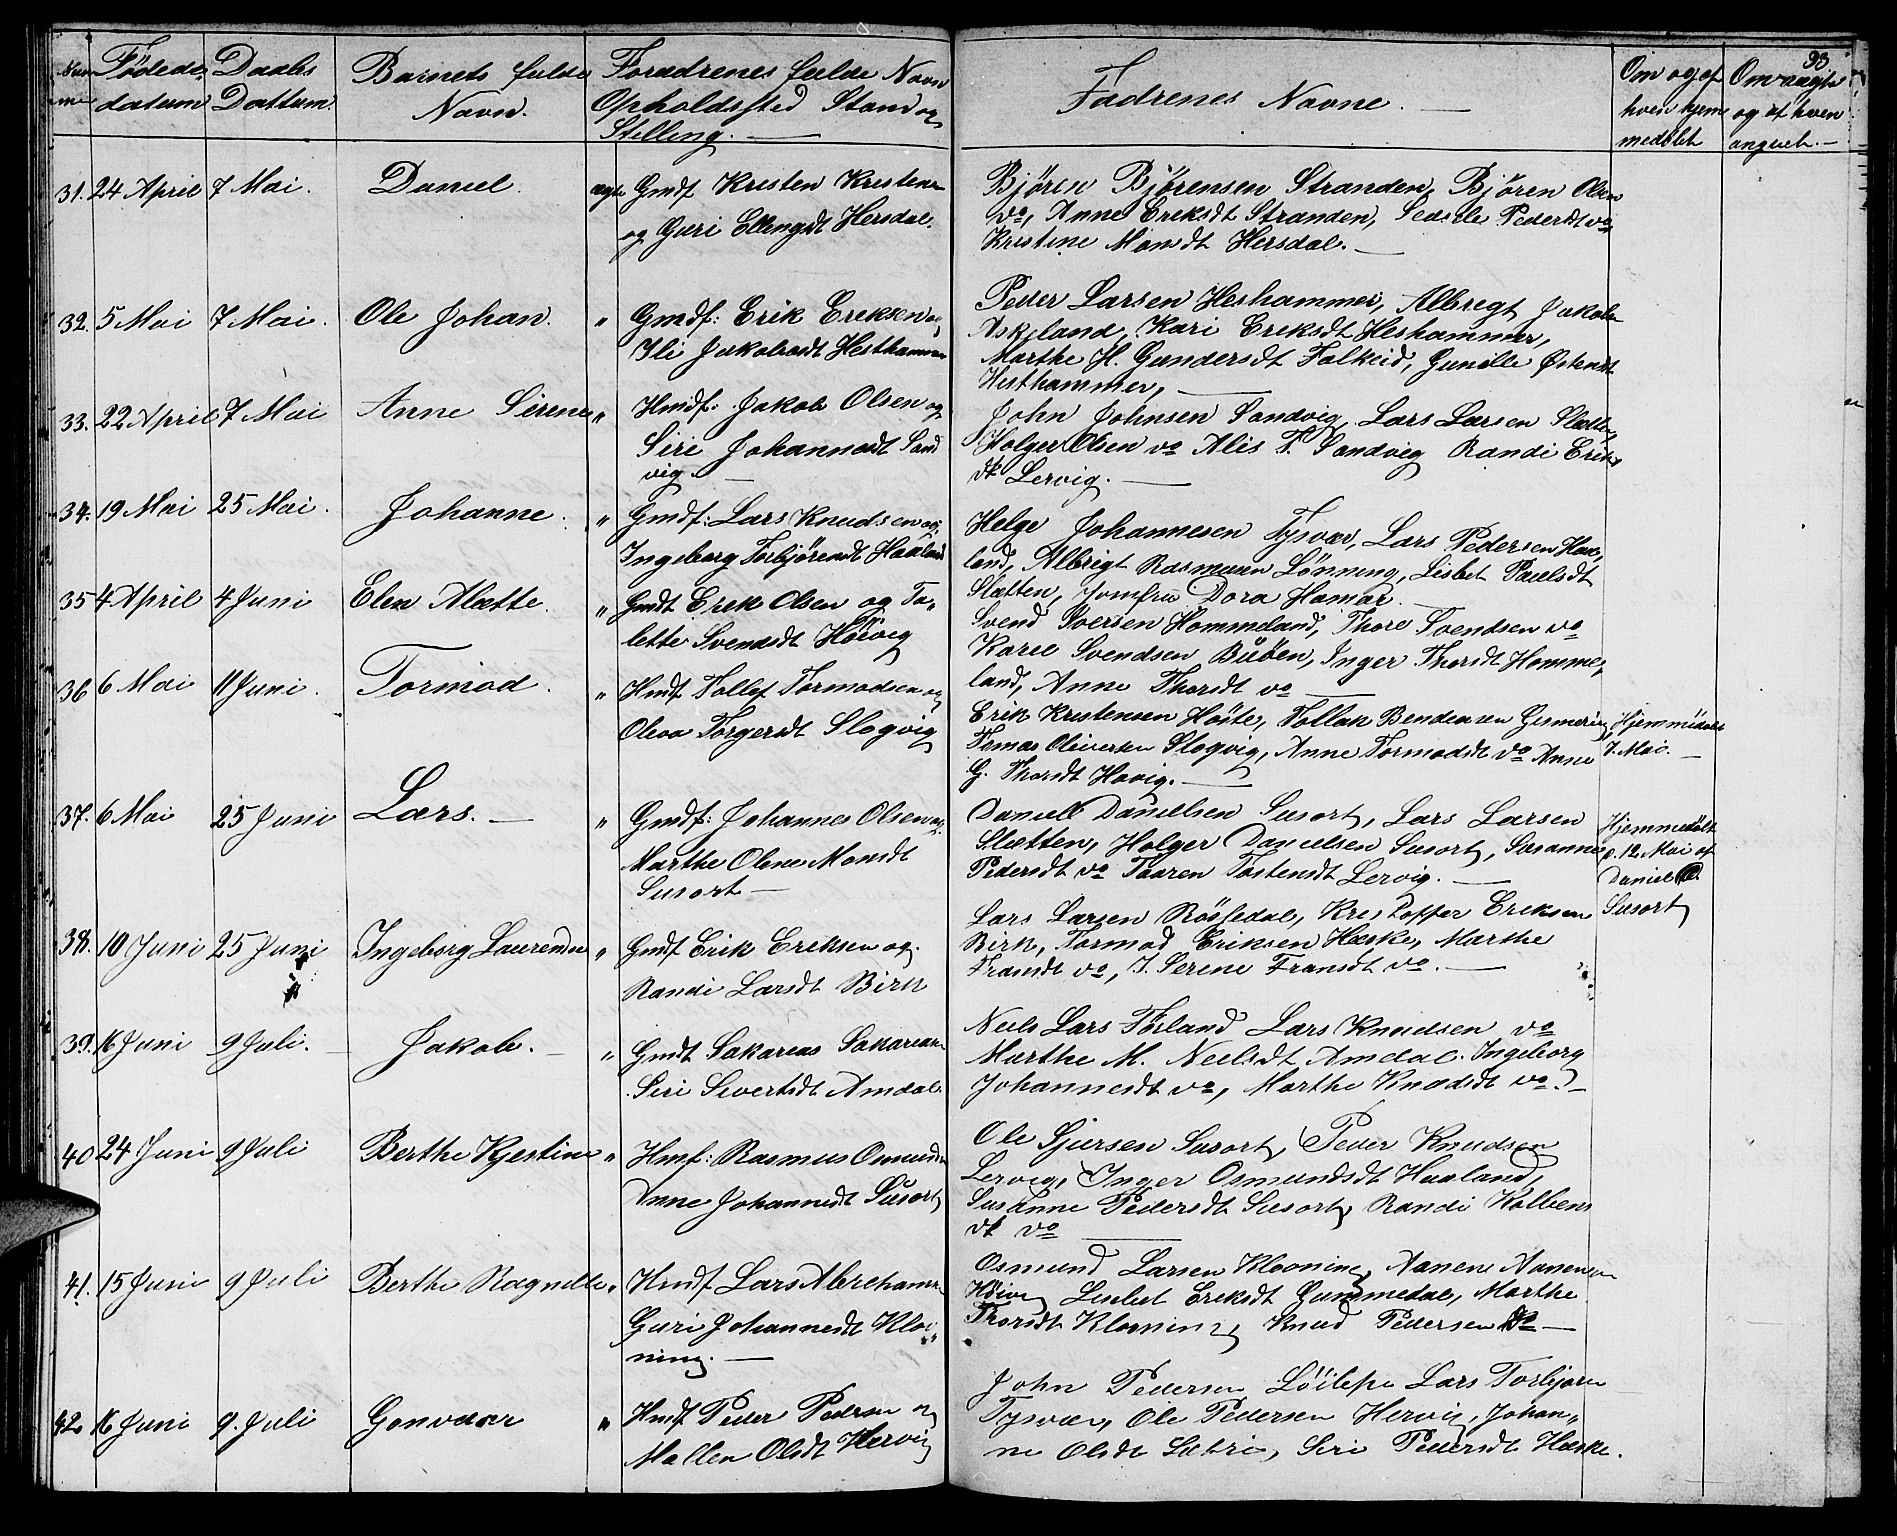 93
Num Fødeds Daabs Barnets fulde Foradrenes fulde Navn
datum Dattum. Navn. Opholdssted Stand og
Stelling. —
Fadrenes Navne. —
Om og af
hven hjem
medøbt
Om
og af hven
anguet. —
31. 24 April 7 Mai. Daniel. ægte Gmdf Kresten Kristens
og Guri Ellingsdt Hersdal.
Bjøren Bjørensen Stranden, Bjøren Olsen
vo, Anne Eriksdt Stranden, Pedersdt vo
Kristine Monsdt Hersdal. —
32. 5 Mai 7 Mai. Ole Johan. " Gmdf: Erik Ereksen og
Jakobsdt Hesthammer
Peder Larsen Heshammer, Albregt Jakobsen
Askjland, Kari Ereksdt Heshammer,
Marthe H. Gundersdt Falkeid, Gunille
Hesthammer, —
33. 22 April 7 Mai Anne Serene " Hmdf: Jakob Olsen og
Siri Johannesdt Sand
vig —
John Johnsen Sandvig, Lars Larsen Slætten
Holger Olsen vo Alis T. Sandvig Randi Eriks
dt Lervig. —
34. 19 Mai 25 Mai. Johanne. " Gmdf: Lars Knudsen og
Ingeborg Torbjørensdt Haaland
Helge Johannesen Tysvær, Lars Pedersen Haa,
land, Albrigt Rasmusen Lønning, Lisbet Paulsdt
Slætten, Jomfru Dora Hamar. —
35 4 April 4 Juni Elen Mætte. " Gmdt Erek Olsen og To,
lette Svendsdt Høievig
Svend Iversen Hommeland, Thore Svendsen vo
Karee Svendsen Buøen, Inger Thorsdt Homme,
land, Anne Thorsdt vo —
36 6 Mai 11 Juni. Tormod. " Hmdf Tollef Tormodsen og
Olava Torgersdt Slogvig
Erik Kristensen Høste, Tollak Bendensen
Tomas Oliversen Slogvig, Anne Tormodsdt vo Anne
G. Thorsdt Høvig. —
Hjemmedøbt
7. Mai. —
37. 6 Mai 25 Juni Lars. — " Gmdf: Johannes Olsen og
Marthe Olene Monsdt
Susort —
Daniel Danielsen Susort, Lars Larsen
Slætten, Holger Danielsen Susort, Susanne
Pedersdt vo Taaren Tostensdt Lervig. —
Hjemmedøbt
d. 12. Mai af
Daniel D.
Susort
38. 10 Juni 25 Juni Ingeborg Laurense " Gmdf Erik Eriksen og.
Randi Larsdt Birk
Lars Larsen Røssedal, Kristoffer Ereksen
Birk, Tormod Eriksen Heske, Marthe
Fransdt vo, J. Serene Fransdt vo. —
39. 16 Juni 9 Juli. — Jakob. — " Gmdt Sakarias Sakareasen
Siri Sivertsdt Amdal
Neels Lars Førland Lars Knudsen vo
Marthe M. Neelsdt Amdal. Ingeborg
Johannesdt vo, Marthe Knudsdt vo. —
40 24 Juni 9 Juli Berthe Kjestine " Hmf: Rasmus Osmundsen
Anne Johannesdt Susort
Ole Sjursen Susort, Peder Knudsen
Lervig, Inger Osmundsdt Haaland,
Susanne Pedersdt Susort, Randi Kolbens
dt vo —
41. 15 Juni 9 Juli Berthe Ragnilde " Hmdf Lars Abrehams
Guri Johannesdt Kloe,
ning. —
Osmund Larsen Klooning, Aanen Aanensen
Lisbet Ereksdt Gummedal, Marthe
Thorsdt Klooning Knud Pedersen vo —
42. 16 Juni 9. Juli Gonvaar " Hmdf Peder Pedersen og
Mallen Olsdt Hervig
John Pedersen Lars Torbjørn
Tysvær, Ole Pedersen Hervig, Johan,
ne Olsdt Sætri, Siri Pedersdt Heske.